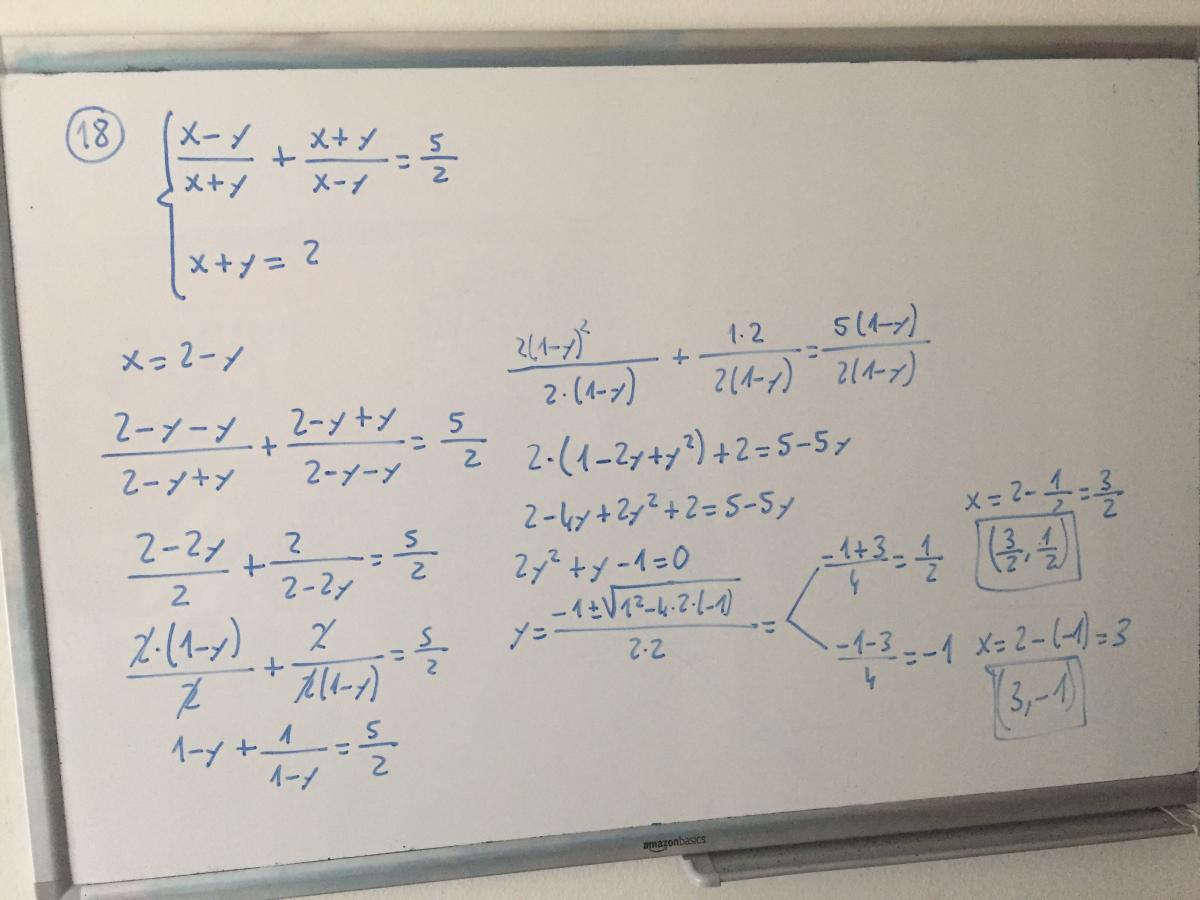 18
(x-y)/(x+y) + (x+y)/(x-y) = 5/2
x+y = 2
x = 2-y
(2-y-y)/(2-y+y) + (2-y+y)/(2-y-y) = 5/2
(2-2y)/2 + 2/(2-2y) = 5/2
2·(1-y)/2 + 2/2(1-y) = 5/2
1-y + 1/(1-y) = 5/2
2(1-y)²/2·(1-y) + 1·2/2(1-y) = 5(1-y)/2(1-y)
2·(1-2y+y²)+2=5-5y
2-4y+2y²+2=5-5y
2y²+y-1=0
y = (-1±√(1²-4·2·(-1)))/2·2 =
(-1+3)/4 = 1/2
x = 2-1/2 = 3/2
(3/2, 1/2)
(-1-3)/4 = -1
x = 2-(-1) = 3
(3,-1)
amazonbasics